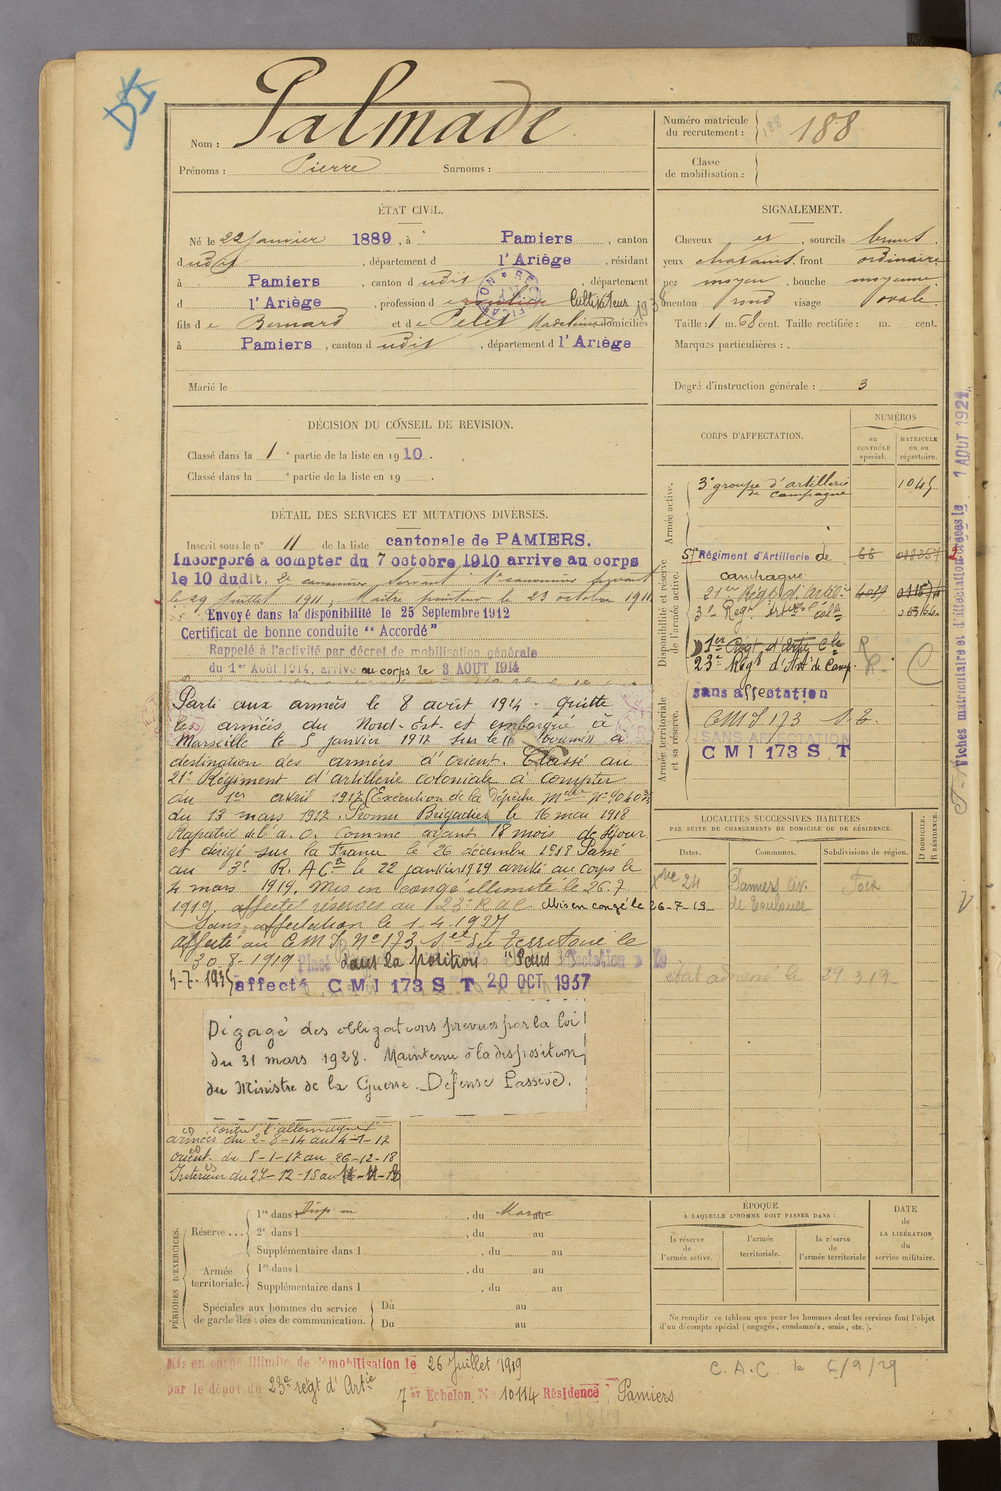 Nom : Palmade
Prénoms : Pierre Surnoms :
Numéro matricule du recrutement : 188
Classe de mobilisation :
ÉTAT CIVIL.
Né le 22 Janvier 1889, à Pamiers, canton
dudit, département d l'Ariège, résidant
à Pamiers, canton d udit, département
d l'Ariège, profession d Cultivateur
fils de Bernard et de Petit Madeleine domiciliés
à Pamiers, canton d udit, département d l'Ariège
Marié le
SIGNALEMENT.
Cheveux et, sourcils bruns.
yeux chatains, front ordinaire
nez moyen, bouche moyenne
menton rond visage ovale.
Taille : 1 m. 68 cent. Taille rectifiée : m. cent.
Marques particulières :
Degré d'instruction générale : 3
DÉCISION DU CONSEIL DE REVISION.
Classé dans la 1e partie de la liste en 1910.
Classé dans la e partie de la liste en 19 .
DÉTAIL DES SERVICES ET MUTATIONS DIVERSES.
Inscrit sous le n° 11 de la liste cantonale de PAMIERS.
Incorporé à compter du 7 octobre 1910 arrive au corps
le 10 dudit, 2e canonnier servant 1r canonnier servant
le 29 Juillet 1911, Maître pointeur le 23 octobre 1911
Envoyé dans la disponibilité le 25 Septembre 1912
Certificat de bonne conduite "Accordé"
Rappelé à l'activité par décret de mobilisation générale
du 1er Août 1914, arrivé au corps le 3 AOUT 1914
Parti aux armées le 8 août 1914 - Quitte
les armées du Nord-Est et embarqué à
Marseille le 5 janvier 1917 sur le à
destination des armées d'Orient. Classé au
21e Régiment d'artillerie coloniale à compter
du 1er avril 1917 (Exécution de la Dépêche Melle N° 9040
du 13 mars 1917. Promu Brigadier le 16 mai 1918
Rapatrié de l'a. O. comme ayant 18 mois de séjour
et dirigé sur la France le 26 décembre 1918 Passé
au 3e R.A.C. le 22 janvier 1919 arrivé au corps le
4 mars 1919. Mis en congé illimité le 26.7
1919. affecté réserves au 23e R a c. Mis en congé le 26-7-19
Sans affectation le 1.4.1927
affecté au C M I N° 173 de Territoire le
30.8.1919 Placé dans la position "Sans affectation"
affecté CMI 173 S T 20 OCT 1937
Dégagé des obligations prévues par la loi
du 31 mars 1928. Maintenu à la disposition
du Ministre de la Guerre. Défense Passive.
contre l'allemagne
armées du 2-8-14 au 4-1-17
orient du 5-1-17 au 26-12-18
Intérieur du 27-12-18 au
CORPS D'AFFECTATION.
NUMÉROS
au CONTRÔLE spécial.
MATRICULE ou au répertoire.
Armée active.
3e groupe d'artillerie de campagne 1045
Disponibilité et réserve de l'armée active.
57e Régiment d'Artillerie de campagne 66
21e Régt d'Artil.
3e Régt Artie Cole
1er Régt d'Artie Cle
23e Régt d'Art de Camp.
sans affectation
Armée territoriale et sa réserve.
CMI 173 S.T.
SANS AFFECTATION
CMI 173 S T
LOCALITÉS SUCCESSIVES HABITÉES
PAR SUITE DE CHANGEMENTS DE DOMICILE OU DE RÉSIDENCE.
Dates. Communes. Subdivisions de région. D DOMICILE. R RÉSIDENCE.
Xbre 24 Pamiers Av. de Toulouse Foix
29.3.19
PÉRIODES D'EXERCICES.
Réserve ...
1re dans Disp. en, du Maroc au
2e dans l , du au
Supplémentaire dans l , du au
Armée territoriale.
1re dans l , du au
Supplémentaire dans l , du au
Spéciales aux hommes du service de garde des voies de communication.
Du au
Du au
ÉPOQUE
À LAQUELLE L'HOMME DOIT PASSER DANS :
la réserve de l'armée active.
l'armée territoriale.
la réserve de l'armée territoriale
DATE de LA LIBÉRATION du service militaire.
Ne remplir ce tableau que pour les hommes dont les services font l'objet
d'un décompte spécial (engagés, condamnés, omis, etc.).
Mis en congé illimité de démobilisation le 26 Juillet 1919
par le dépôt du 23e régt d'Artie
7e Echelon N° 10114 Résidence Pamiers
C.A.C le 5/9/29
Fiches matriculaire et d'affectation créées le 1 AOUT 1921